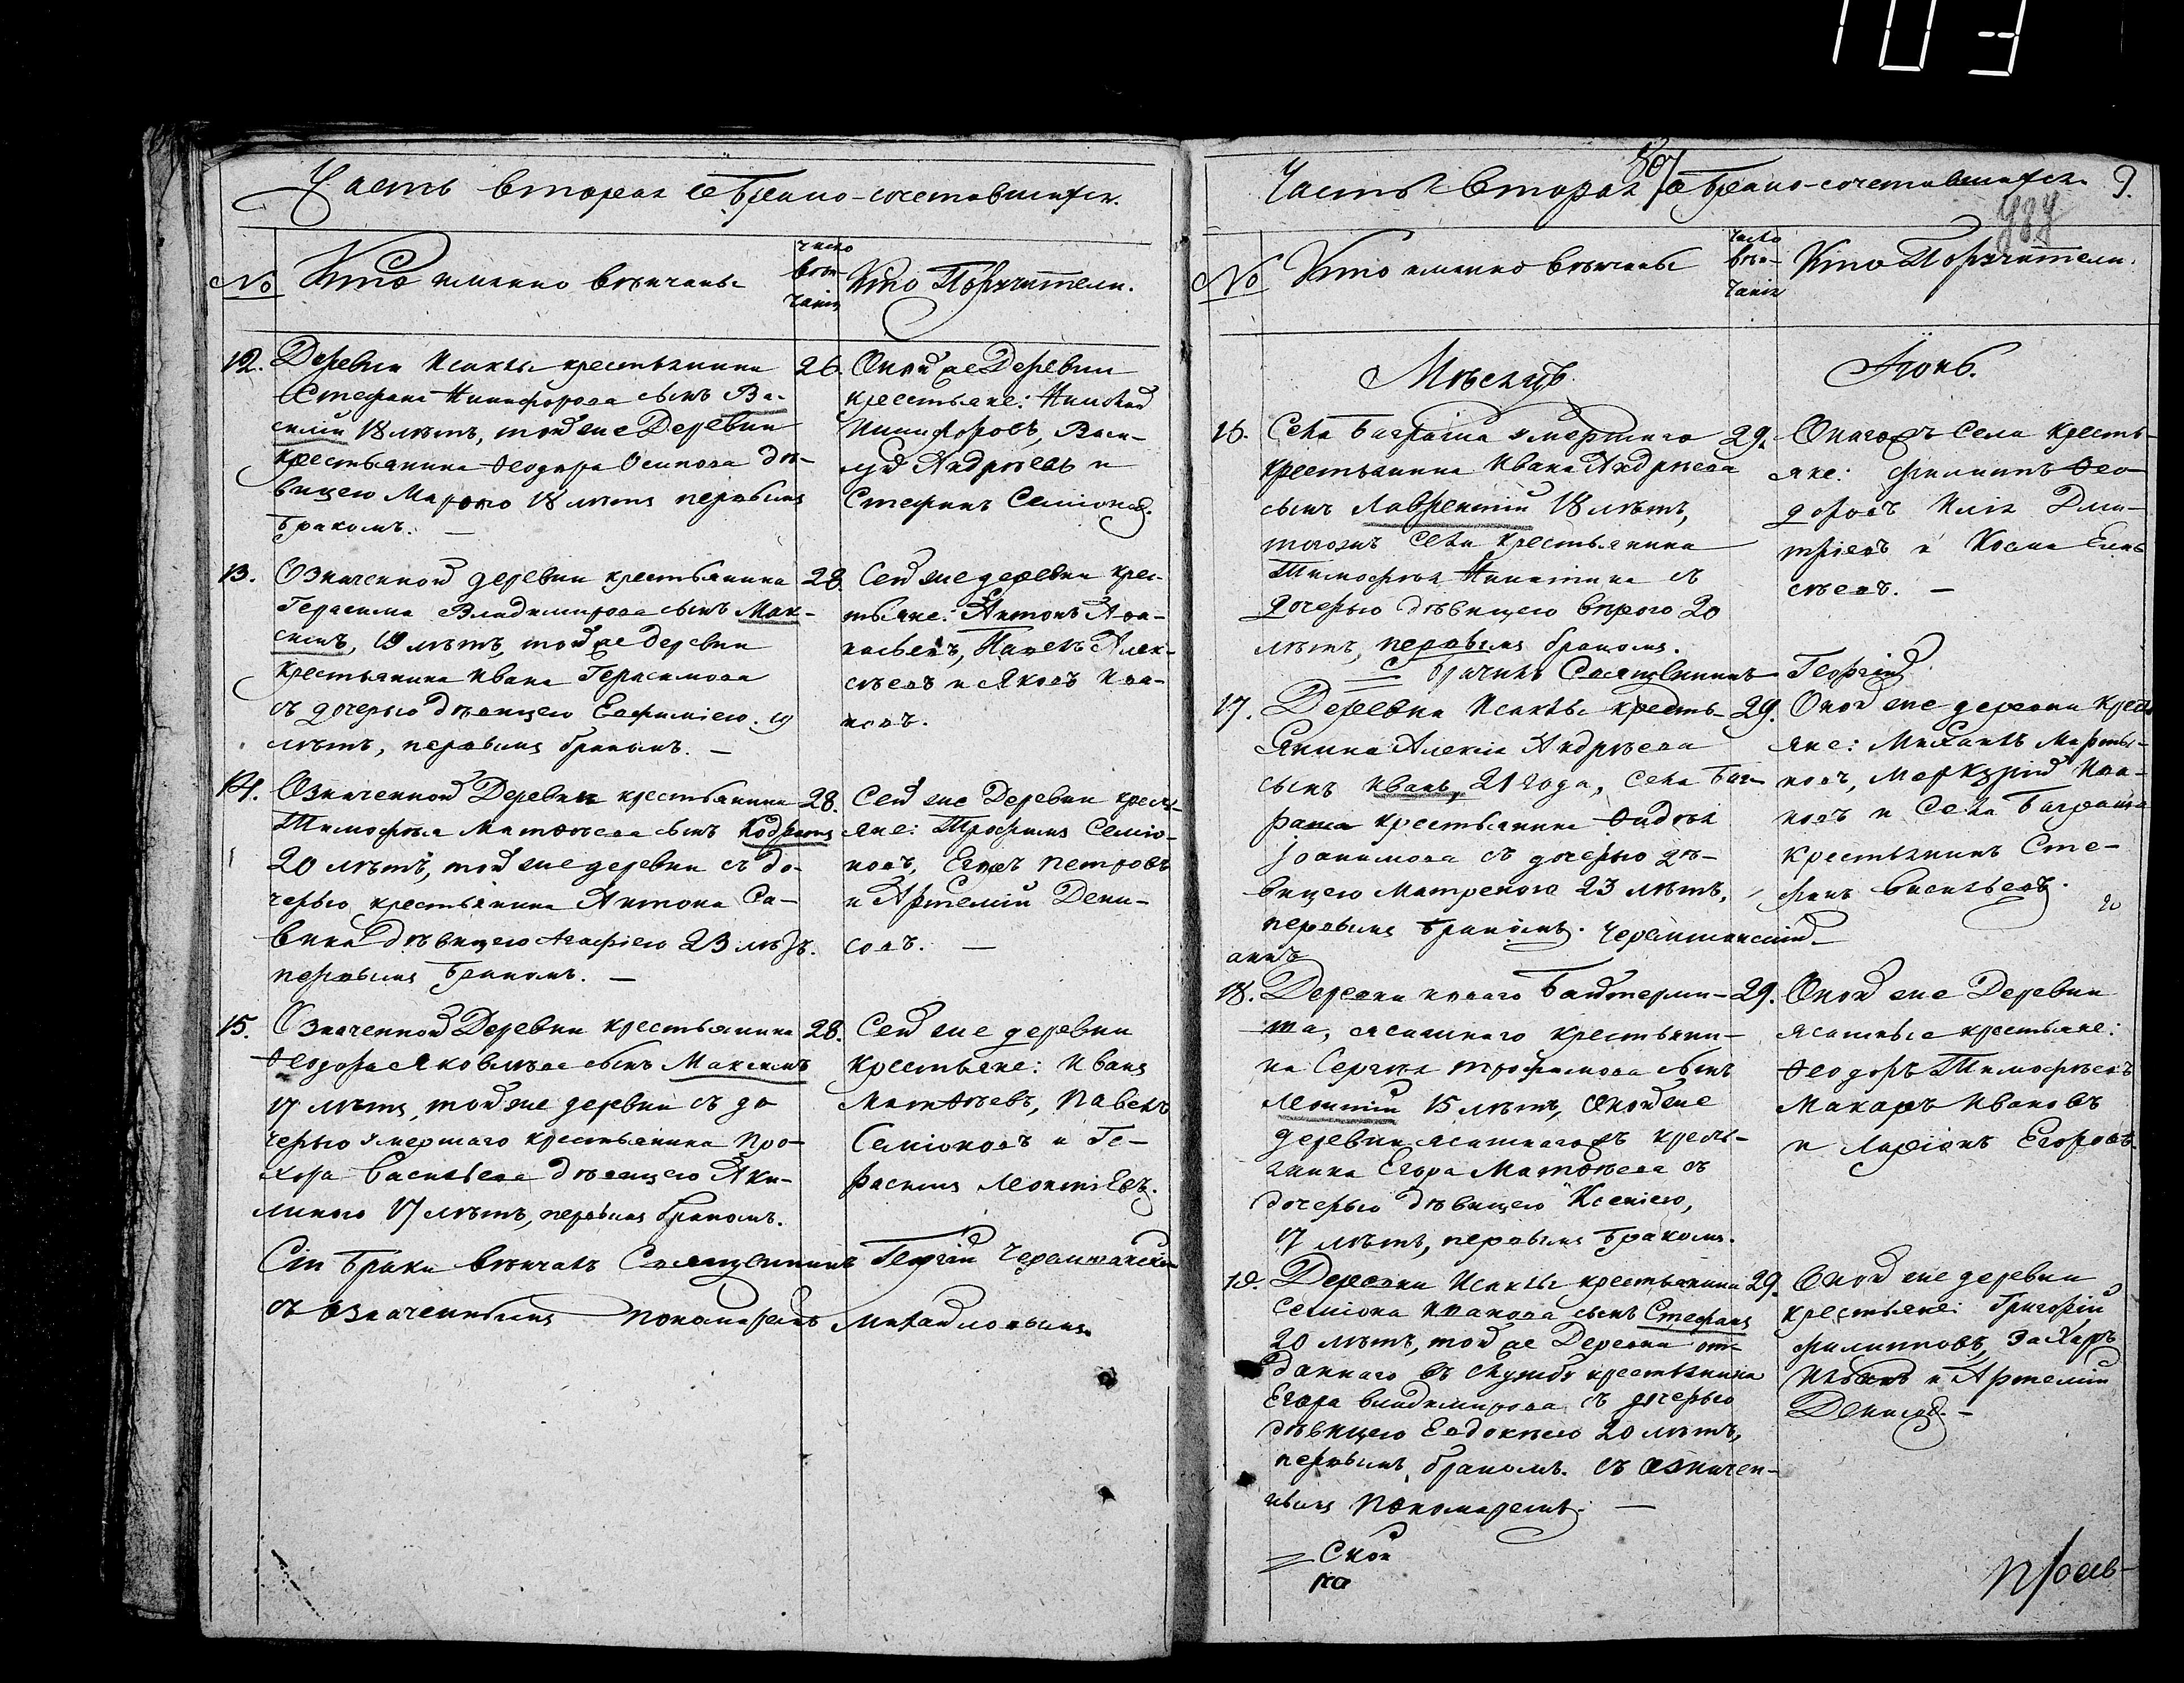 103
Часть вторая о брако-сочетавшихся.
№
Кто именно вѣнчаны
число
вѣн-
чанія
Кто Поручители.
12. Деревни Исаклы крестьянина
Стефана Никифорова сынъ Ва-
силій 18 лѣтъ, той же Деревни
крестьянина Ѳеодора Осипова дѣ-
вицею Марѳою 18 лѣтъ первымъ
бракомъ. —
26.
Оной же Деревни
крестьяне:
Никифоровъ, Васи-
лій Андрѣевъ и
Стефанъ Семіоновъ.
13. Означенной деревни крестьянина
Герасима Владимирова сынъ Мак-
симъ, 19 лѣтъ, той же деревни
крестьянина Ивана Герасимова
съ дочерью дѣвицею Евфиміею. 19
лѣтъ, первымъ бракомъ. —
28.
Сей же деревни крес-
тьяне: Антонъ Аѳа-
насьевъ, Павелъ Алек-
сѣевъ и Яковъ Ива-
новъ.
14. Означенной Деревни крестьянина
Тимофѣя Матѳѣева сынъ Кодратъ
20 лѣтъ, той же деревни съ до-
черью крестьянина Антона Са-
вина дѣвицею Агафіею 23 лѣтъ.
первымъ бракомъ. —
28.
Сей же Деревни кресть-
яне: Трофимъ Семіо-
новъ, Егоръ Петровъ
и Артемій Дени-
совъ. —
15. Означенной Деревни крестьянина
Ѳеодора Яковлева сынъ Максимъ
17 лѣтъ, той же деревни съ до
черью умершаго крестьянина Про-
хора Васильева дѣвицею Аки-
линою 17 лѣтъ, первымъ бракомъ.
28.
Сей же деревни
крестьяне: Иванъ
Матѳѣевъ, Павелъ
Семіоновъ и Ге-
расимъ Леонтіевъ.
Сіи браки вѣнчалъ Священникъ Георгій Черемшанскій
съ означеннымъ пономаремъ Михайловымъ.
Часть вторая о брако-сочетавшихся. 9.
№
Кто именно вѣнчаны
число
вѣн-
чанія
Кто Поручители.
Мѣсяцъ
Іюнь.
16. Села Баграша умершаго
крестьянина Ивана Андрѣева
сынъ Лаврентій 18 лѣтъ,
тогожъ села крестьянина
Тимофѣя Никитина съ
дочерью дѣвицею Вѣрою 20
лѣтъ, первымъ бракомъ.
29.
Онагожъ села кресть-
яне: Филиппъ Ѳео-
доровъ Илія Дми-
тріевъ и Косма Ели-
сѣевъ. —
Священникъ Георгій
17. Деревни Исаклы кресть-
янина Алексія Андрѣева
сынъ Иванъ, 21 года, села Баг-
раша крестьянина Ѳадѣя
Іоакимова съ дочерью дѣ-
вицею Матреною 23 лѣтъ,
первымъ бракомъ. Черемшанскій
29.
Оной же деревни кресть
яне: Михаилъ Марты-
новъ, Меркурій Ива-
новъ и села Баграша
крестьянинъ Сте-
фанъ Васильевъ.
18. Деревни новаго Байтерми-
ша, ясашнаго крестьяни-
на Сергѣя Трофимова сынъ
Леонтій 15 лѣтъ, Оной же
деревни ясашнагожъ кресть-
янина Егора Матѳѣева съ
дочерью дѣвицею Ксеніею,
17 лѣтъ, первымъ бракомъ.
29.
Оной же Деревни
ясашные крестьяне:
Ѳеодоръ Тимофѣевъ
Макаръ Ивановъ
и Ларіонъ Егоровъ.
19. Деревни Исаклы крестьянина
Семіона Иванова сынъ Стефанъ
20 лѣтъ, той же Деревни от-
даннаго въ службу крестьянина
Егора Владимирова съ дочерью
дѣвицею Евдокіею 20 лѣтъ,
первымъ бракомъ. съ означен-
нымъ пономаремъ. —
29.
Оной же деревни
крестьяне: Григорій
Филипповъ, Захаръ
и Артемій
Денисовъ. —